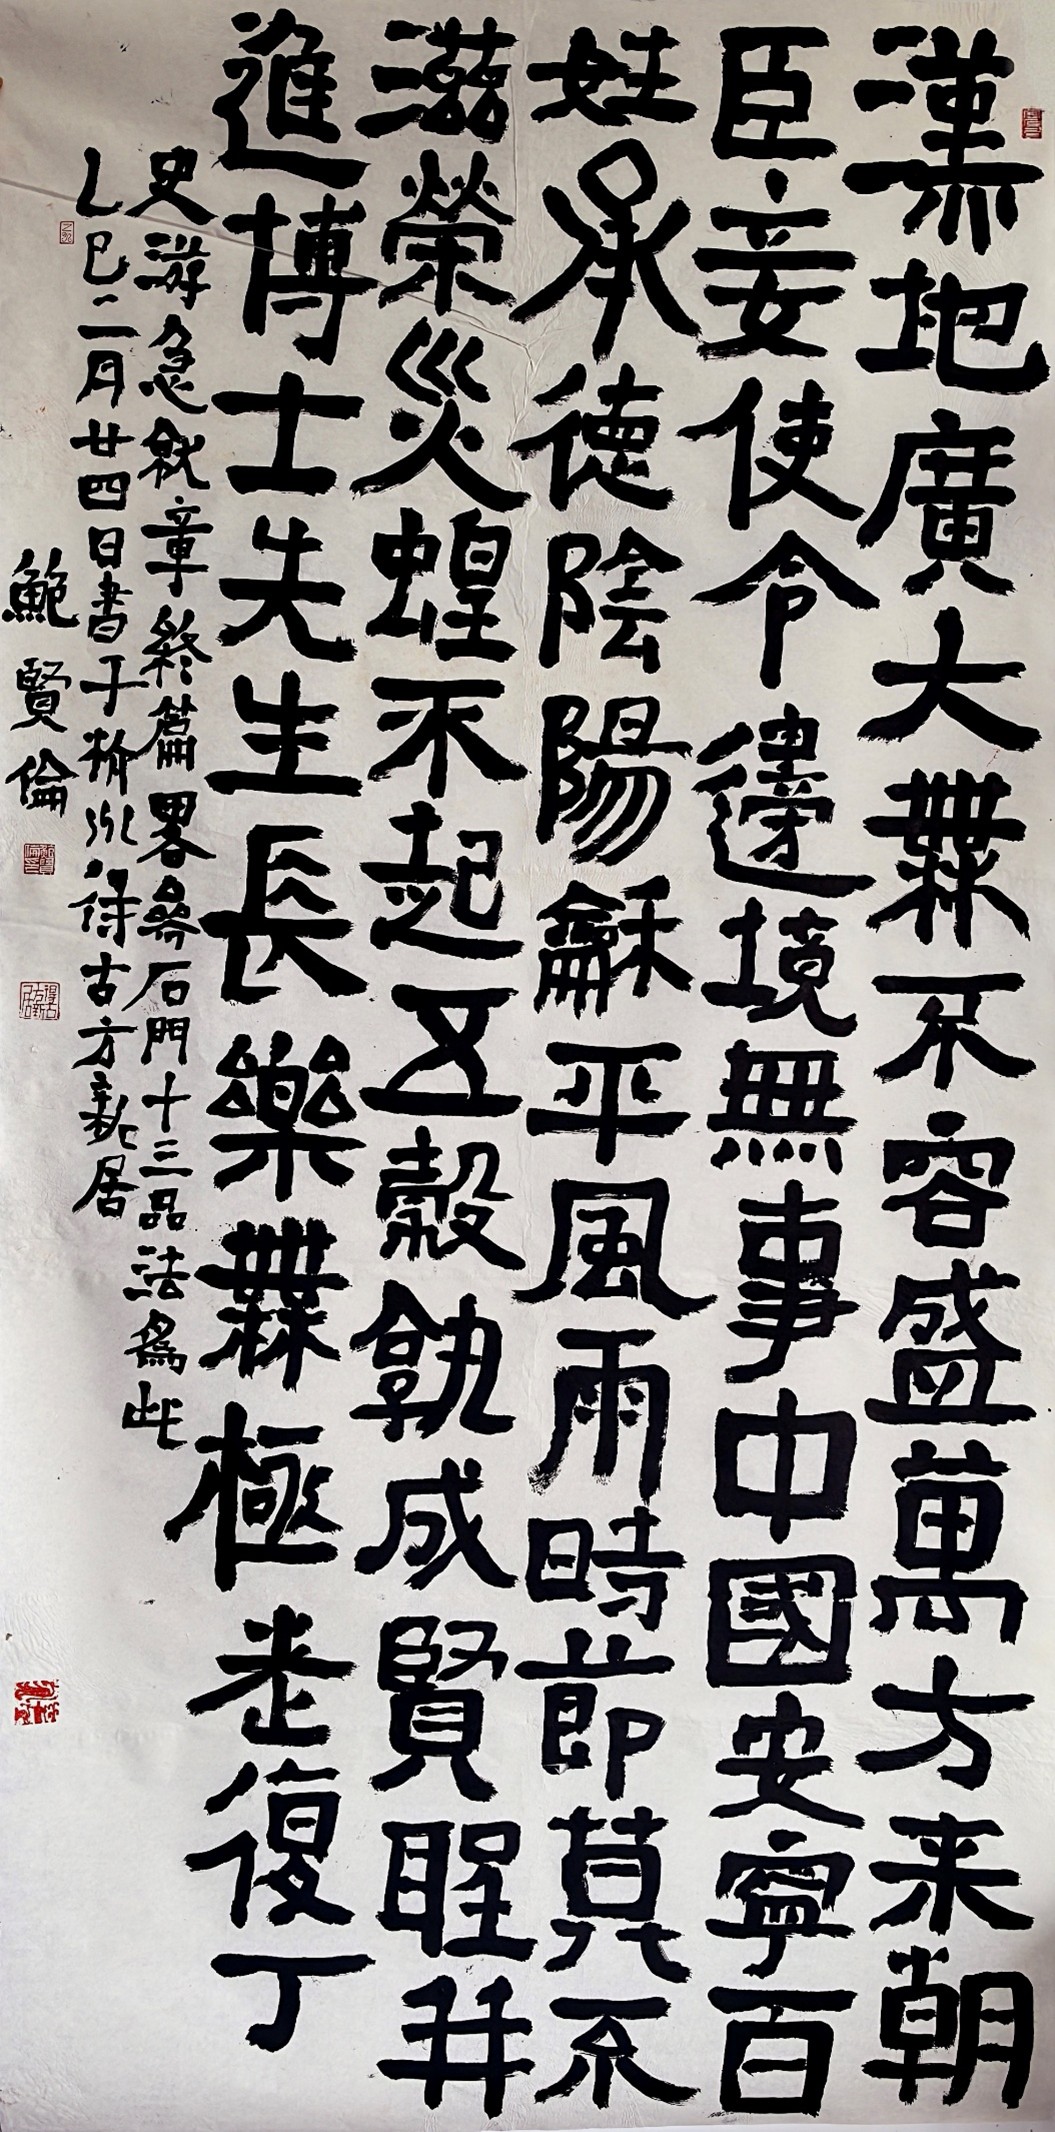 漢地廣大無不容盛萬方来朝
臣妾使令邊境無事中國安寧百
姓承德陰陽龢平風雨時節莫不
滋榮災蝗不起五穀孰成賢聖并
進博士先生長樂無極老復丁
史游急就章終篇畧參石門十三品法為此
乙巳二月廿四日書于 得古方新居
鮑賢倫